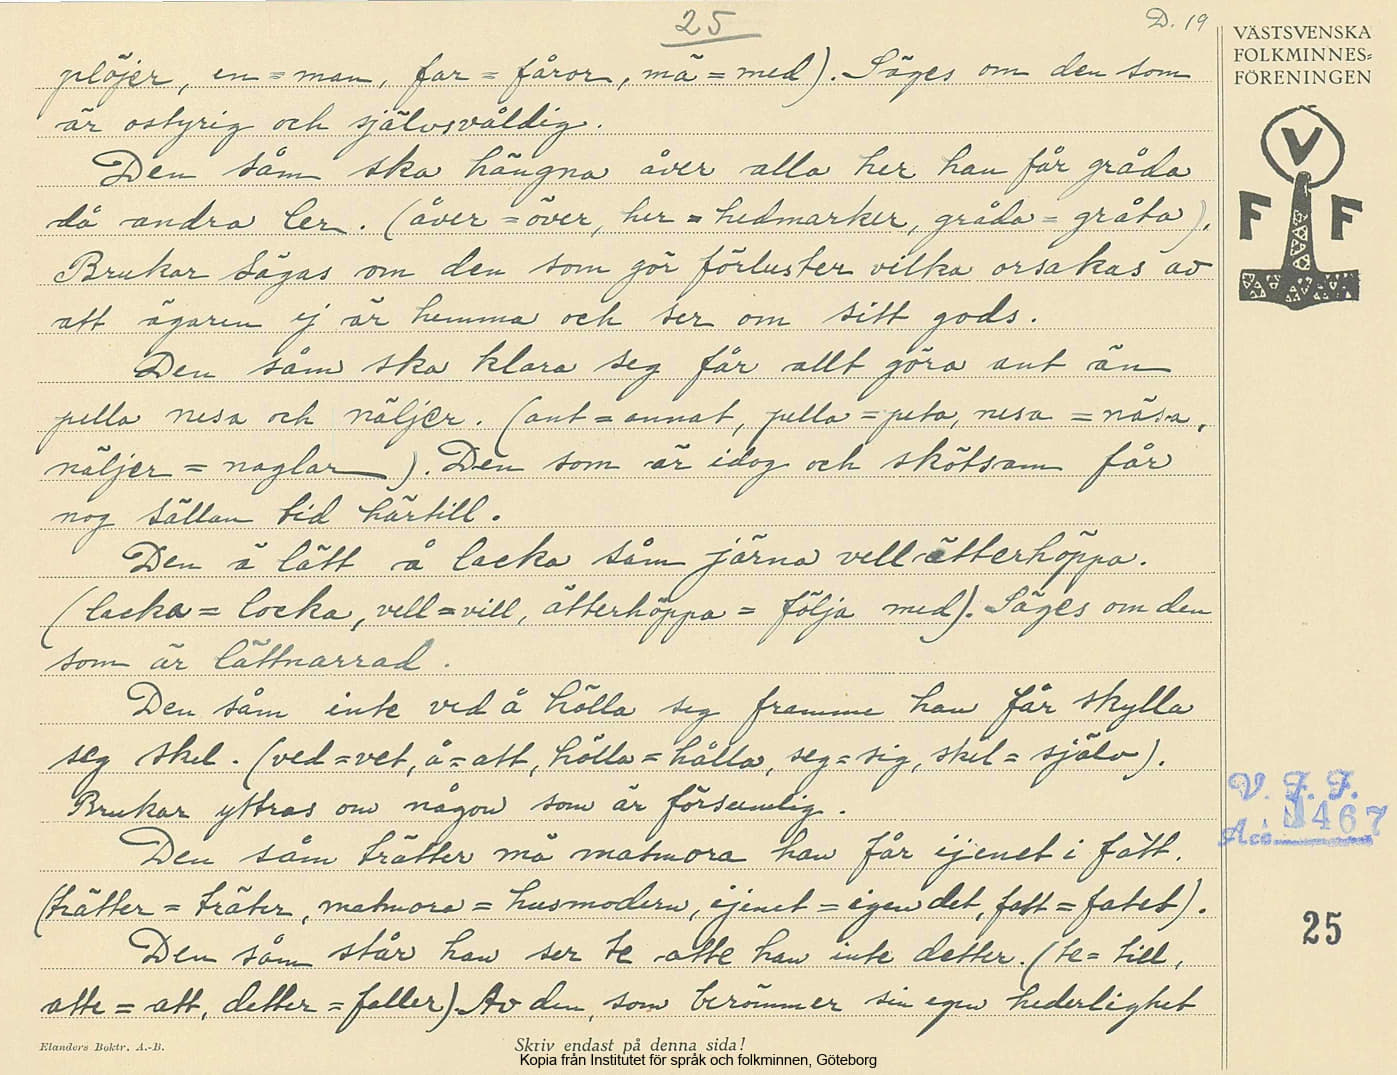 25
D. 19
VÄSTSVENSKA
FOLKMINNES=
FÖRENINGEN
V
F F
plöjer, en = man, far = fåror, mä = med). Säges om den som
är ostyrig och självsvåldig.
Den såm ska hängna åver alla her han får gråda
då andra ler. (åver = över, her = hedmarker, gråda = gråta).
Brukar sägas om den som gör förluster vilka orsakas av
att ägaren ej är hemma och ser om sitt gods.
Den såm ska klara seg får allt göra ant än
pella nesa och näljer. (ant = annat, pella = peta, nesa = näsa,
näljer = naglar). Den som är idog och skötsam får
nog sällan tid härtill.
Den ä lätt å lacka såm järna vell ätterhöppa.
(lacka = locka, vell = vill, ätterhöppa = följa med). Säges om den
som är lättnarrad.
Den såm inte ved å hölla seg framme han får skylla
seg skel. (ved = vet, å = att, hölla = hålla, seg = sig, skel = själv).
Brukar yttras om någon som är försumlig.
Den såm trätter må matmora han får ijenet i fatt.
(trätter = träter, matmora = husmodern, ijenet = igen det, fatt = fatet).
Den såm står han ser te atte han inte detter. (te = till,
atte = att, detter = faller). Av den, som berömmer sin egen hederlighet
V. F. F.
Acc. 1467
25
Elanders Boktr. A.-B.
Skriv endast på denna sida!
Kopia från Institutet för språk och folkminnen, Göteborg